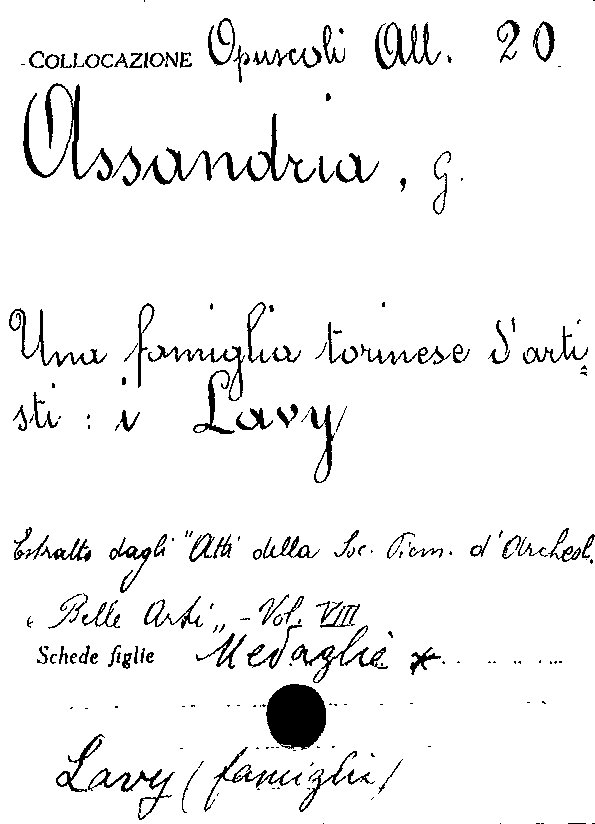 COLLOCAZIONE Opuscoli All. 20
Assandria, G.
Una famiglia torinese d'arti=
sti : i Lavy
Estratto dagli "Atti della Soc. Piem. d'Archeol.
e Belle Arti„ - Vol. VIII
Schede figlie Medaglie *
Lavy (famiglia)